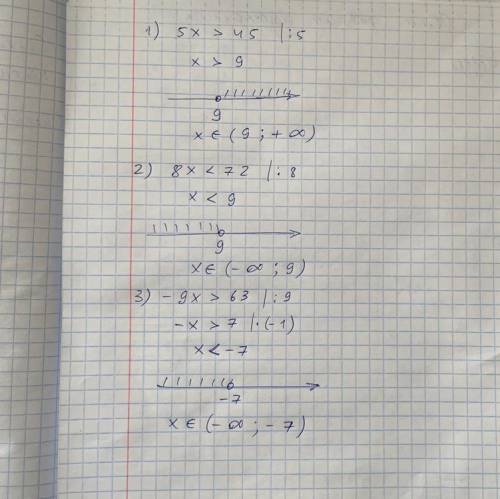 1) 5x > 45 |:5
x > 9
9
x ∈ (9 ; +∞)
2) 8x < 72 |:8
x < 9
9
x ∈ (-∞ ; 9)
3) -9x > 63 |:9
-x > 7 |·(-1)
x < -7
-7
x ∈ (-∞ ; -7)